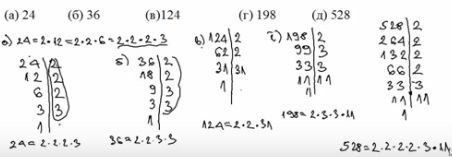 (а) 24 (б) 36 (в)124 (г) 198 (д) 528
а) 24=2·12=2·2·6=2·2·2·3
24 2
12 2
6 2
3 3
1
24=2·2·2·3
б) 36 2
18 2
9 3
3 3
1
36=2·2·3·3
в) 124 2
62 2
31 31
1
124=2·2·31
г) 198 2
99 3
33 3
11 11
1
198=2·3·3·11
528 2
264 2
132 2
66 2
33 3
11 11
1
528=2·2·2·2·3·11